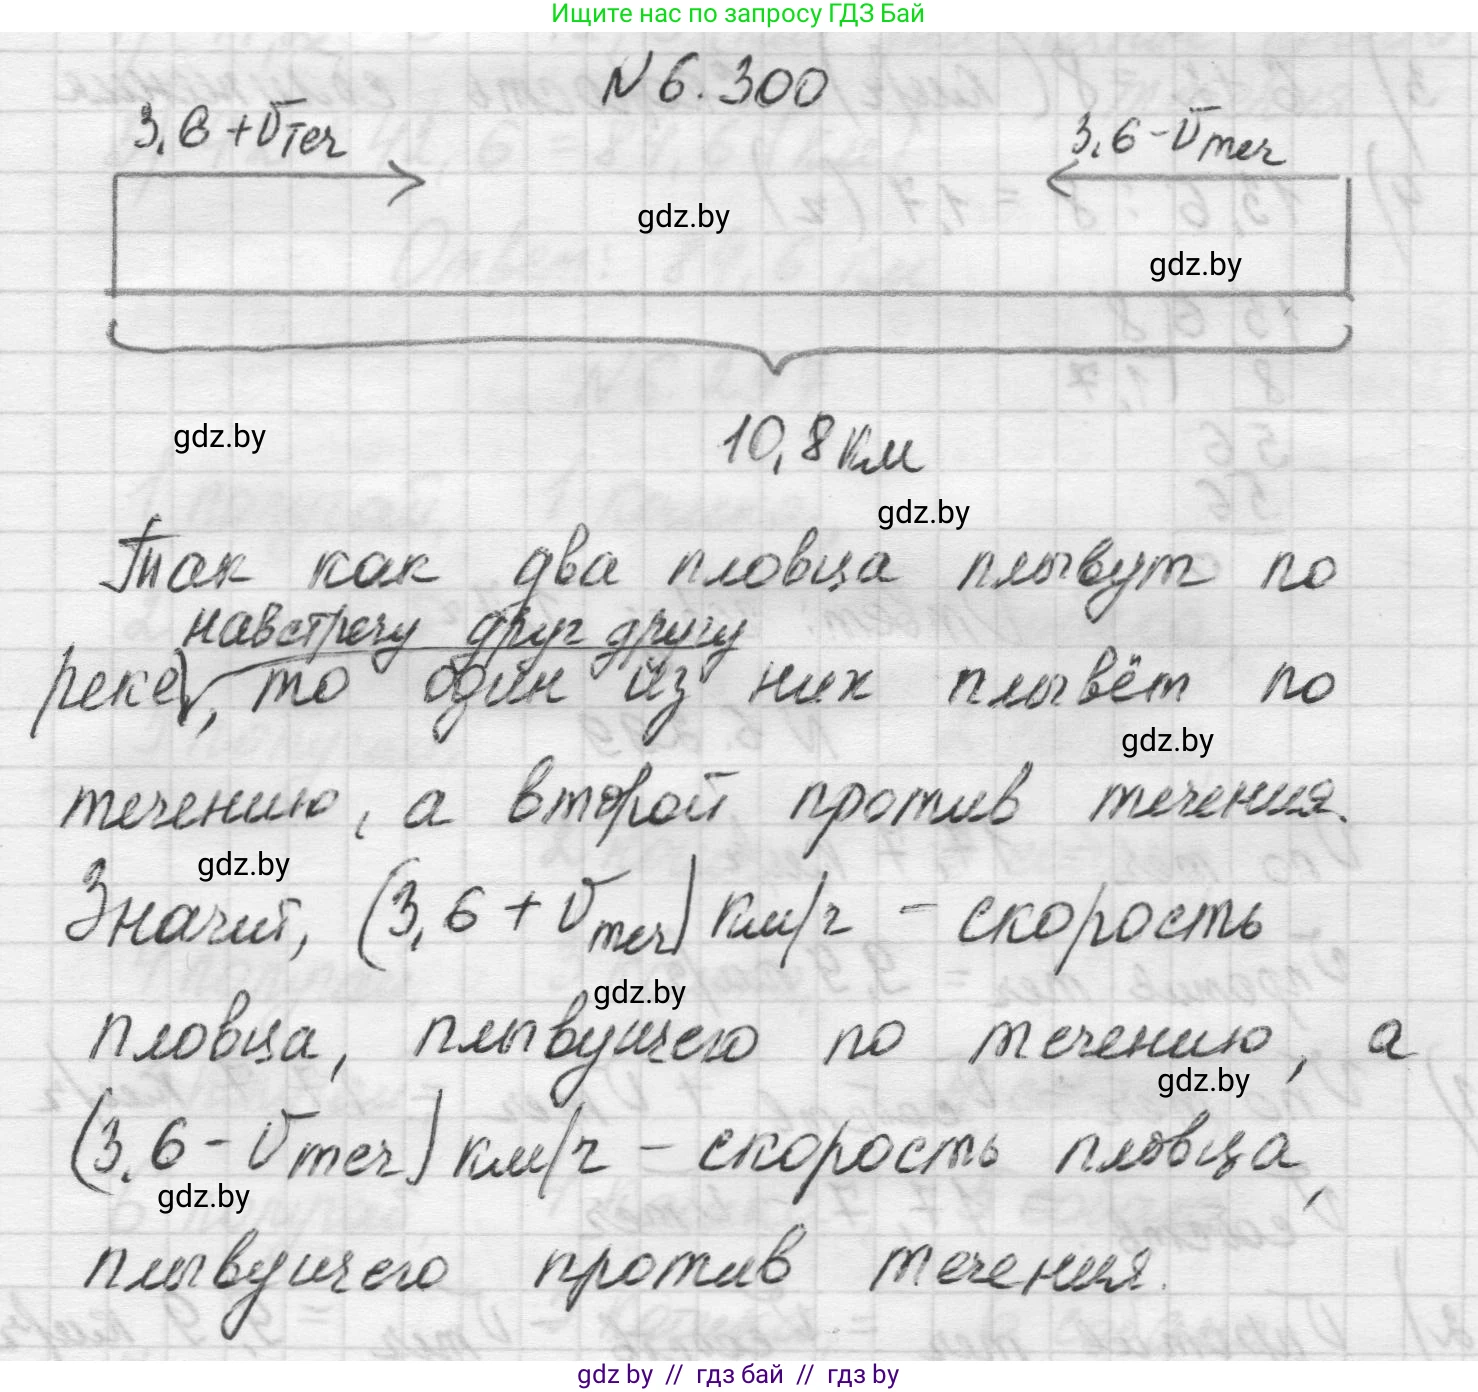 Ищите нас по запросу ГДЗ Бай
N 6.300
3,6 + υтеч
3,6 - υтеч
gdz.by
gdz.by
gdz.by
10,8 км
gdz.by
Так как два пловца плывут по
навстречу друг другу
реке, то один из них плывёт по
gdz.by
течению, а второй против течения.
gdz.by
Значит, (3,6 + υтеч) км/ч - скорость
gdz.by
пловца, плывущего по течению, а
gdz.by
(3,6 - υтеч) км/ч - скорость пловца,
gdz.by
плывущего против течения.
gdz by // гдз бай // гдз by